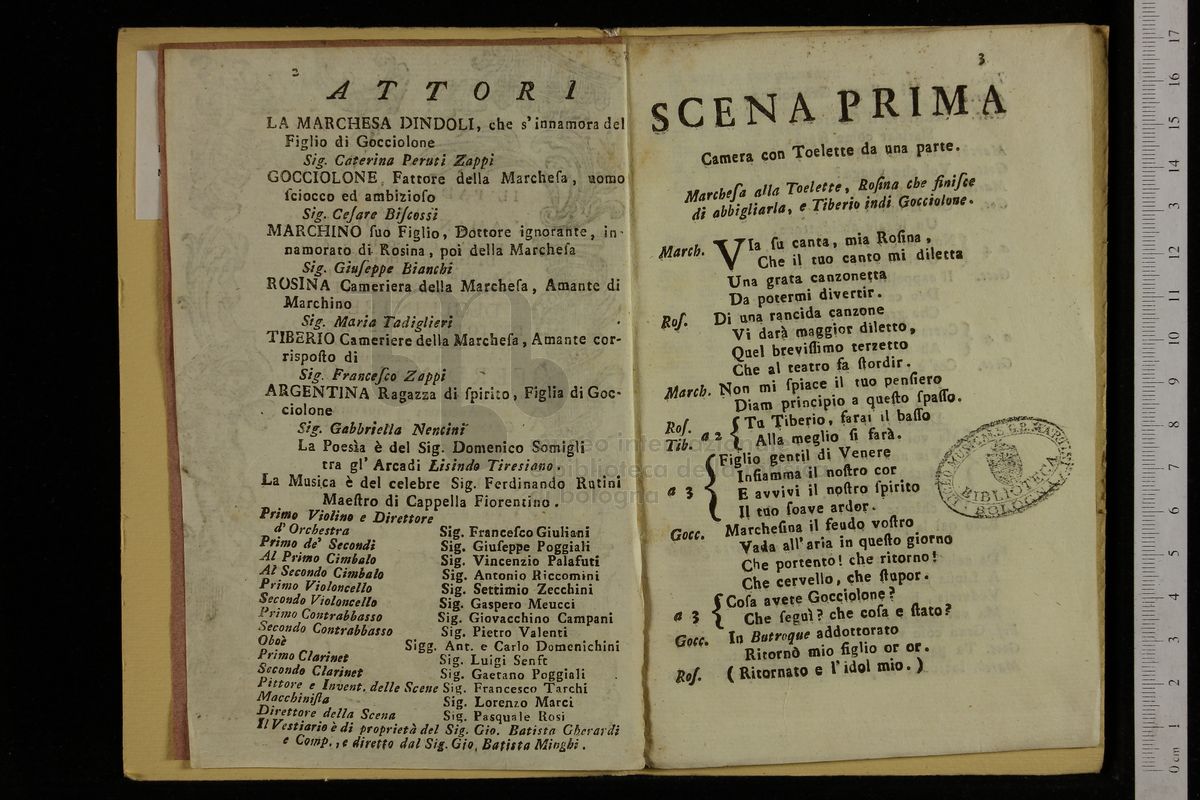 2
ATTORI
LA MARCHESA DINDOLI, che s'innamora del
Figlio di Gocciolone
Sig. Caterina Peruti Zappi
GOCCIOLONE, Fattore della Marcheſa, uomo
ſciocco ed ambizioſo
Sig. Ceſare Biſcossi
MARCHINO ſuo Figlio, Dottore ignorante, in-
namorato di Rosina, poi della Marcheſa
Sig. Giuſeppe Bianchi
ROSINA Cameriera della Marcheſa, Amante di
Marchino
Sig. Maria Tadiglieri
TIBERIO Cameriere della Marcheſa, Amante cor-
risposto di
Sig. Franceſco Zappi
ARGENTINA Ragazza di ſpirito, Figlia di Goc-
ciolone
Sig. Gabbriella Nencini
La Poesìa è del Sig. Domenico Somigli
tra gl' Arcadi Lisindo Tiresiano.
La Musica è del celebre Sig. Ferdinando Rutini
Maeſtro di Cappella Fiorentino.
Primo Violino e Direttore
d'Orchestra Sig. Franceſco Giuliani
Primo de' Secondi Sig. Giuſeppe Poggiali
Al Primo Cimbalo Sig. Vincenzio Palafuti
Al Secondo Cimbalo Sig. Antonio Riccomini
Primo Violoncello Sig. Settimio Zecchini
Secondo Violoncello Sig. Gaspero Meucci
Primo Contrabbasso Sig. Giovacchino Campani
Secondo Contrabbasso Sig. Pietro Valenti
Oboè Sigg. Ant. e Carlo Domenichini
Primo Clarinet Sig. Luigi Senft
Secondo Clarinet Sig. Gaetano Poggiali
Pittore e Invent. delle Scene Sig. Francesco Tarchi
Macchiniſta Sig. Lorenzo Marci
Direttore della Scena Sig. Pasquale Rosi
Il Vestiario è di proprietà del Sig. Gio. Batista Gherardi
e Comp., e diretto dal Sig. Gio. Batista Minghi.
3
SCENA PRIMA
Camera con Toelette da una parte.
Marcheſa alla Toelette, Roſina che finiſce
di abbigliarla, e Tiberio indi Gocciolone.
March. VIa ſu canta, mia Roſina,
Che il tuo canto mi diletta
Una grata canzonetta
Da potermi divertir.
Roſ. Di una rancida canzone
Vi darà maggior diletto,
Quel breviſſimo terzetto
Che al teatro fa ſtordir.
March. Non mi ſpiace il tuo penſiero
Diam principio a queſto ſpaſſo.
Roſ. Tib. a 2 { Tu Tiberio, farai il baſſo
Alla meglio ſi farà.
a 3 { Figlio gentil di Venere
Infiamma il noſtro cor
E avvivi il noſtro ſpirito
Il tuo ſoave ardor.
Gocc. Marcheſina il feudo voſtro
Vada all'aria in queſto giorno
Che portento! che ritorno!
Che cervello, che ſtupor.
a 3 { Coſa avete Gocciolone?
Che ſeguì? che coſa e ſtato?
Gocc. In Butroque addottorato
Ritornò mio figlio or or.
Roſ. (Ritornato e l'idol mio.)
BIBLIOTECA
BOLOGNA
museo internazionale
e biblioteca della musica
di bologna
0 cm 1 2 3 4 5 6 7 8 9 10 11 12 13 14 15 16 17